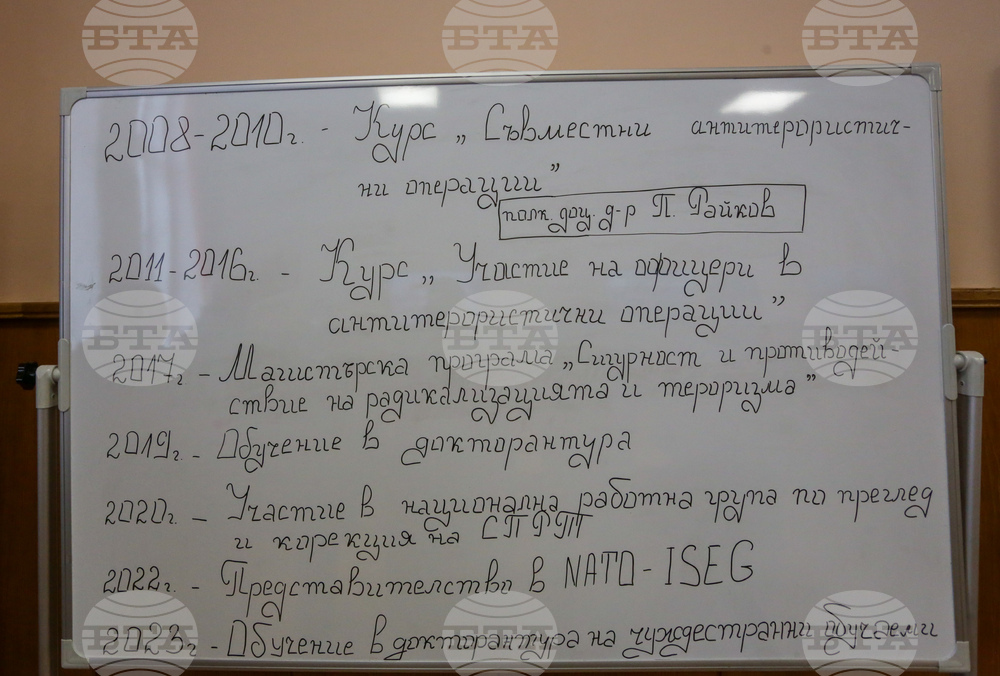 2008-2010г. - Курс „Съвместни антитерористич-
ни операции”
полк. доц. д-р П. Райков
2011-2016г. - Курс „Участие на офицери в
антитерористични операции”
2017г - Магистърска програма „Сигурност и противодей-
ствие на радикализацията и тероризма”
2019г. - Обучение в докторантура
2020г. - Участие в национална работна група по преглед
и корекция на СПРТ
2022г. - Представителство в NATO-ISEG
2023г - Обучение в докторантура на чуждестранни обучаеми
БТА
БТА
БТА
БТА
БТА
БТА
БТА
БТА
БТА